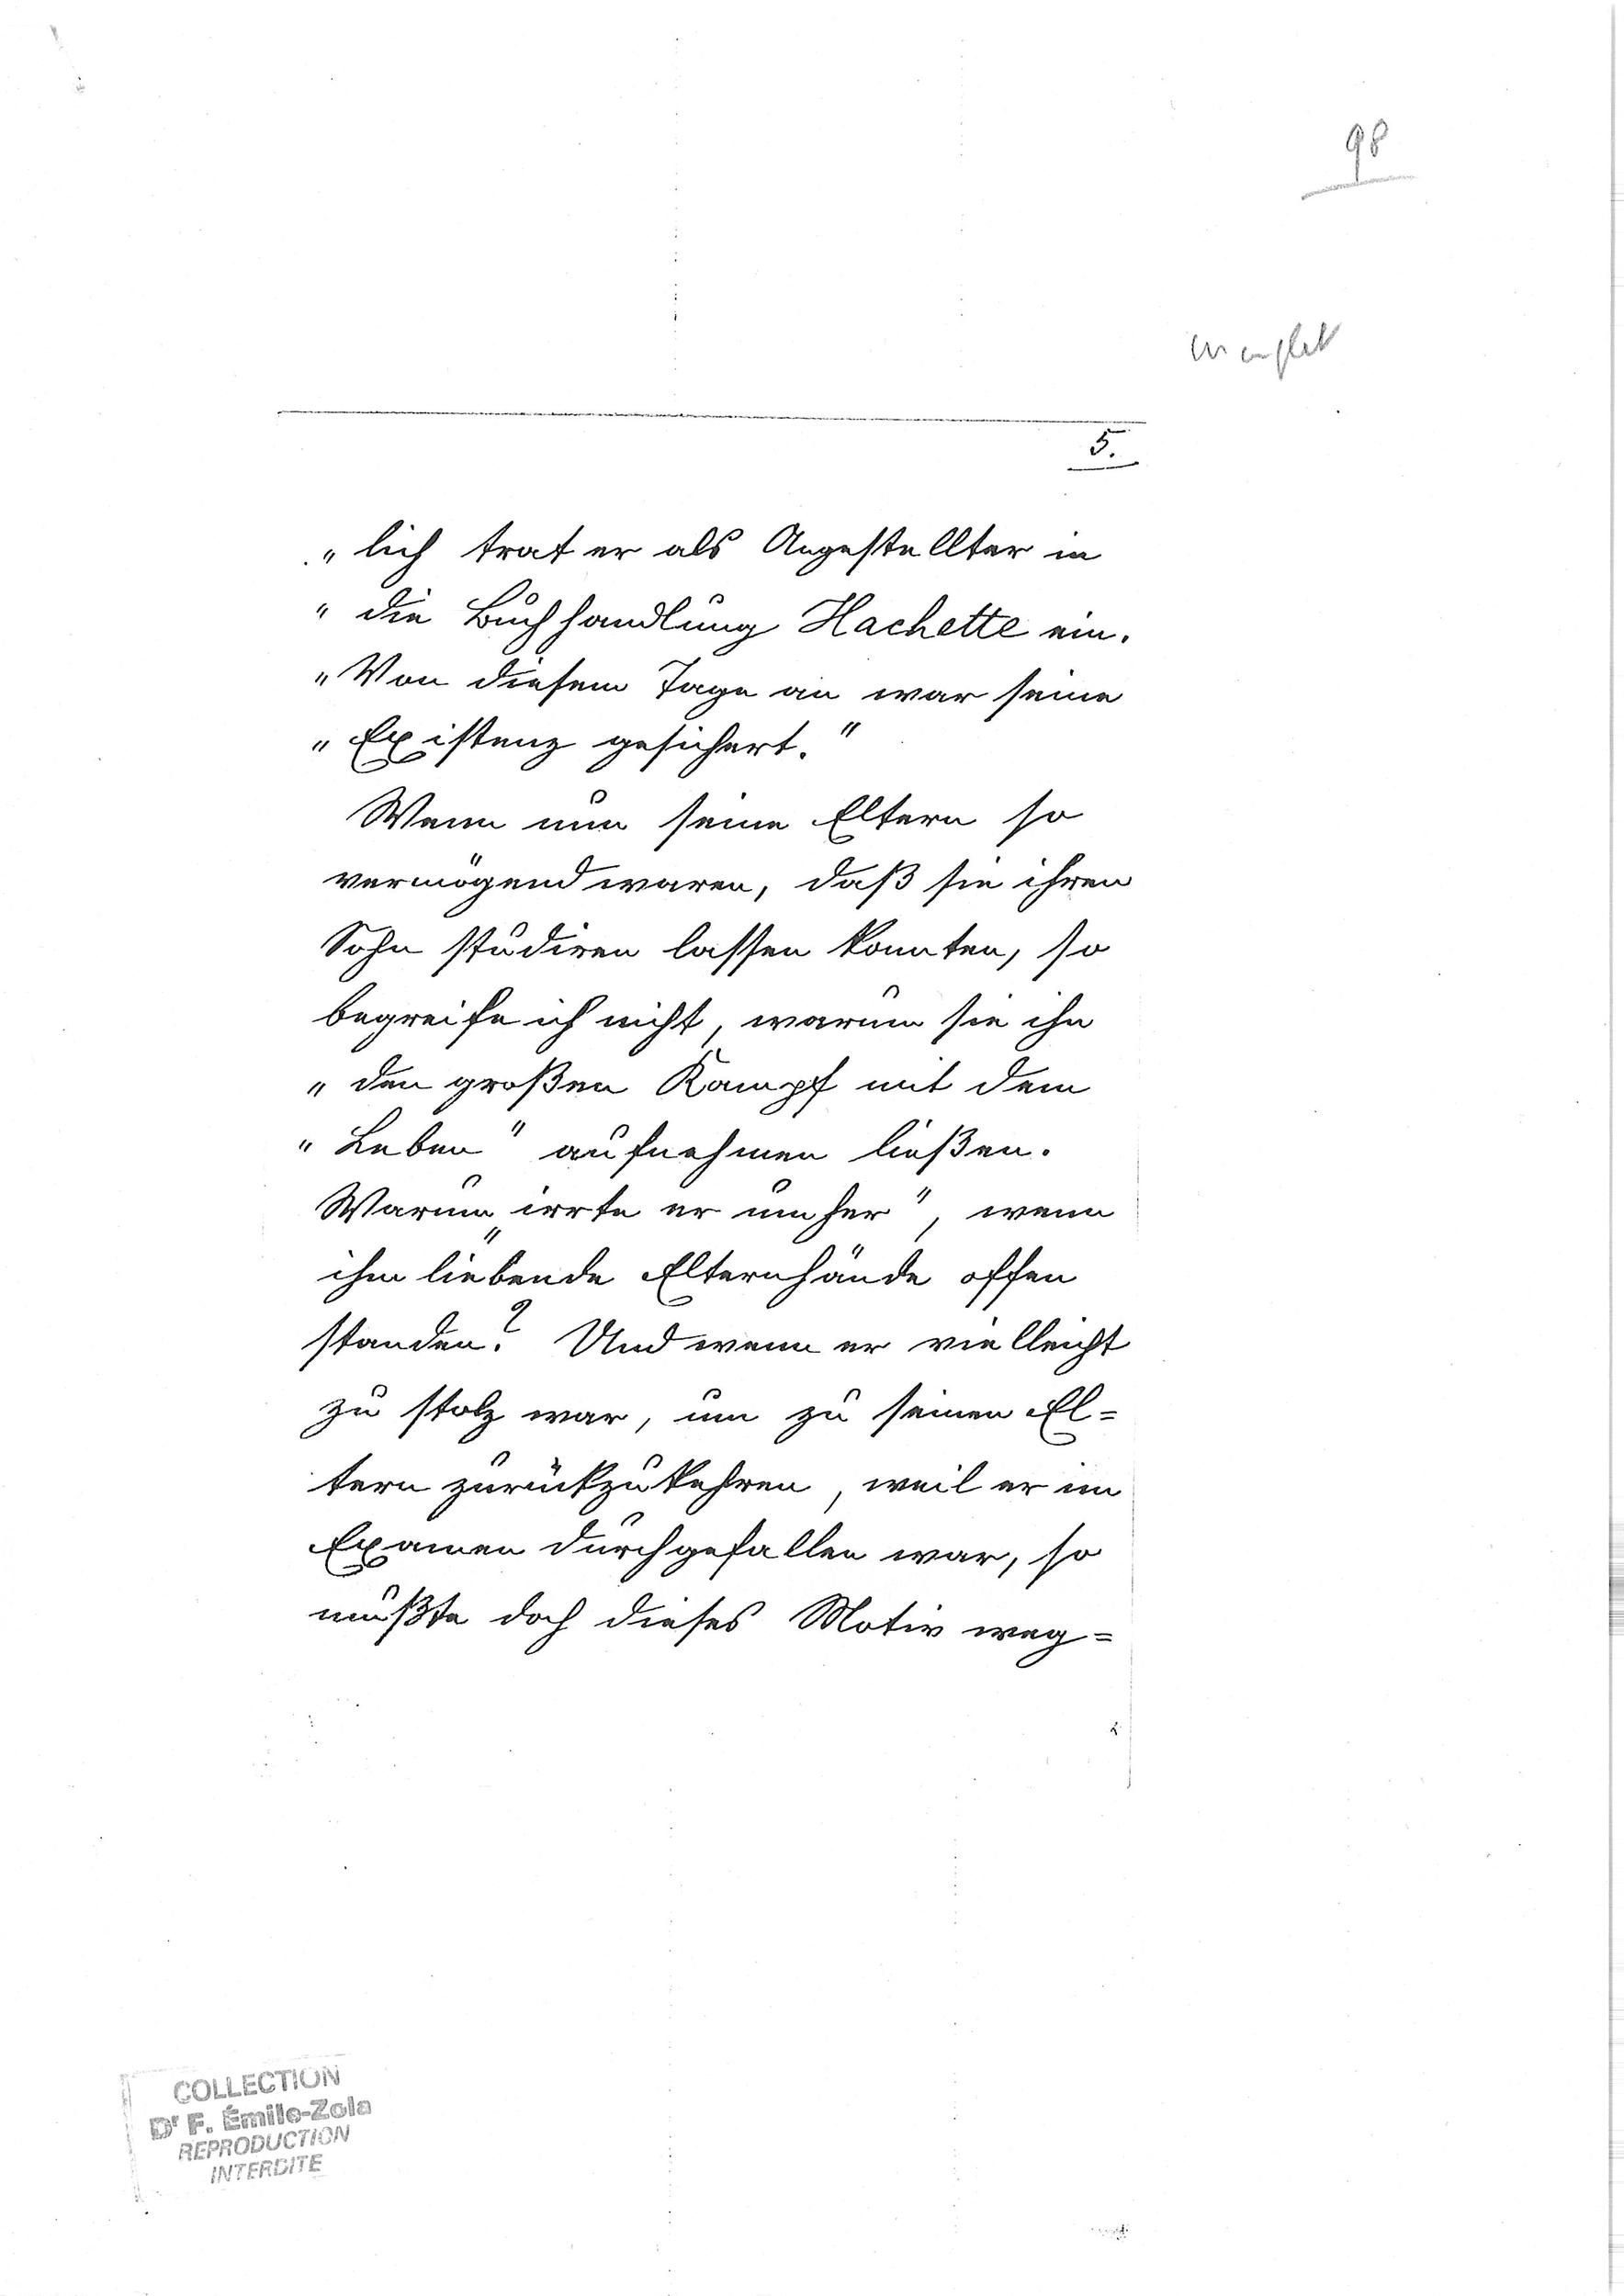 98
5.
„lich trat er als Angestellter in
„die Buchhandlung Hachette ein.
„Von diesem Tage an war seine
„Existenz gesichert."
Wenn nun seine Eltern so
vermögend waren, daß sie ihren
Sohn studiren lassen konnten, so
begreife ich nicht, warum sie ihn
„den großen Kampf mit dem
„Leben" aufnehmen ließen.
Warum „irrte er umher", wenn
ihm liebende Elternhände offen
standen? Und wenn er vielleicht
zu stolz war, um zu seinen El=
tern zurückzukehren, weil er im
Examen durchgefallen war, so
mußte doch dieses Motiv weg=
COLLECTION
Dr F. Émile-Zola
REPRODUCTION
INTERDITE